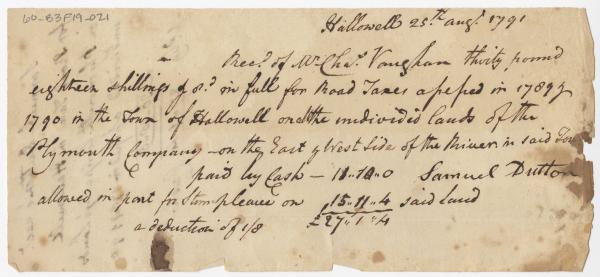 60-83F19-021
Hallowell 25th augt 1791
Recd of Mr Chas Vaughan thirty pound
eighteen shillings & 8d in full for Road Taxes assessed in 1789 &
1790 in the Town of Hallowell on all the undivided lands of the
Plymouth Company - on the East & West Side of the River in said Town
paid by Cash - 11..10..0 Samuel Dutton
allowed in part for on 15..11..4 said Land
a deduction of 1/8 £27..1..4